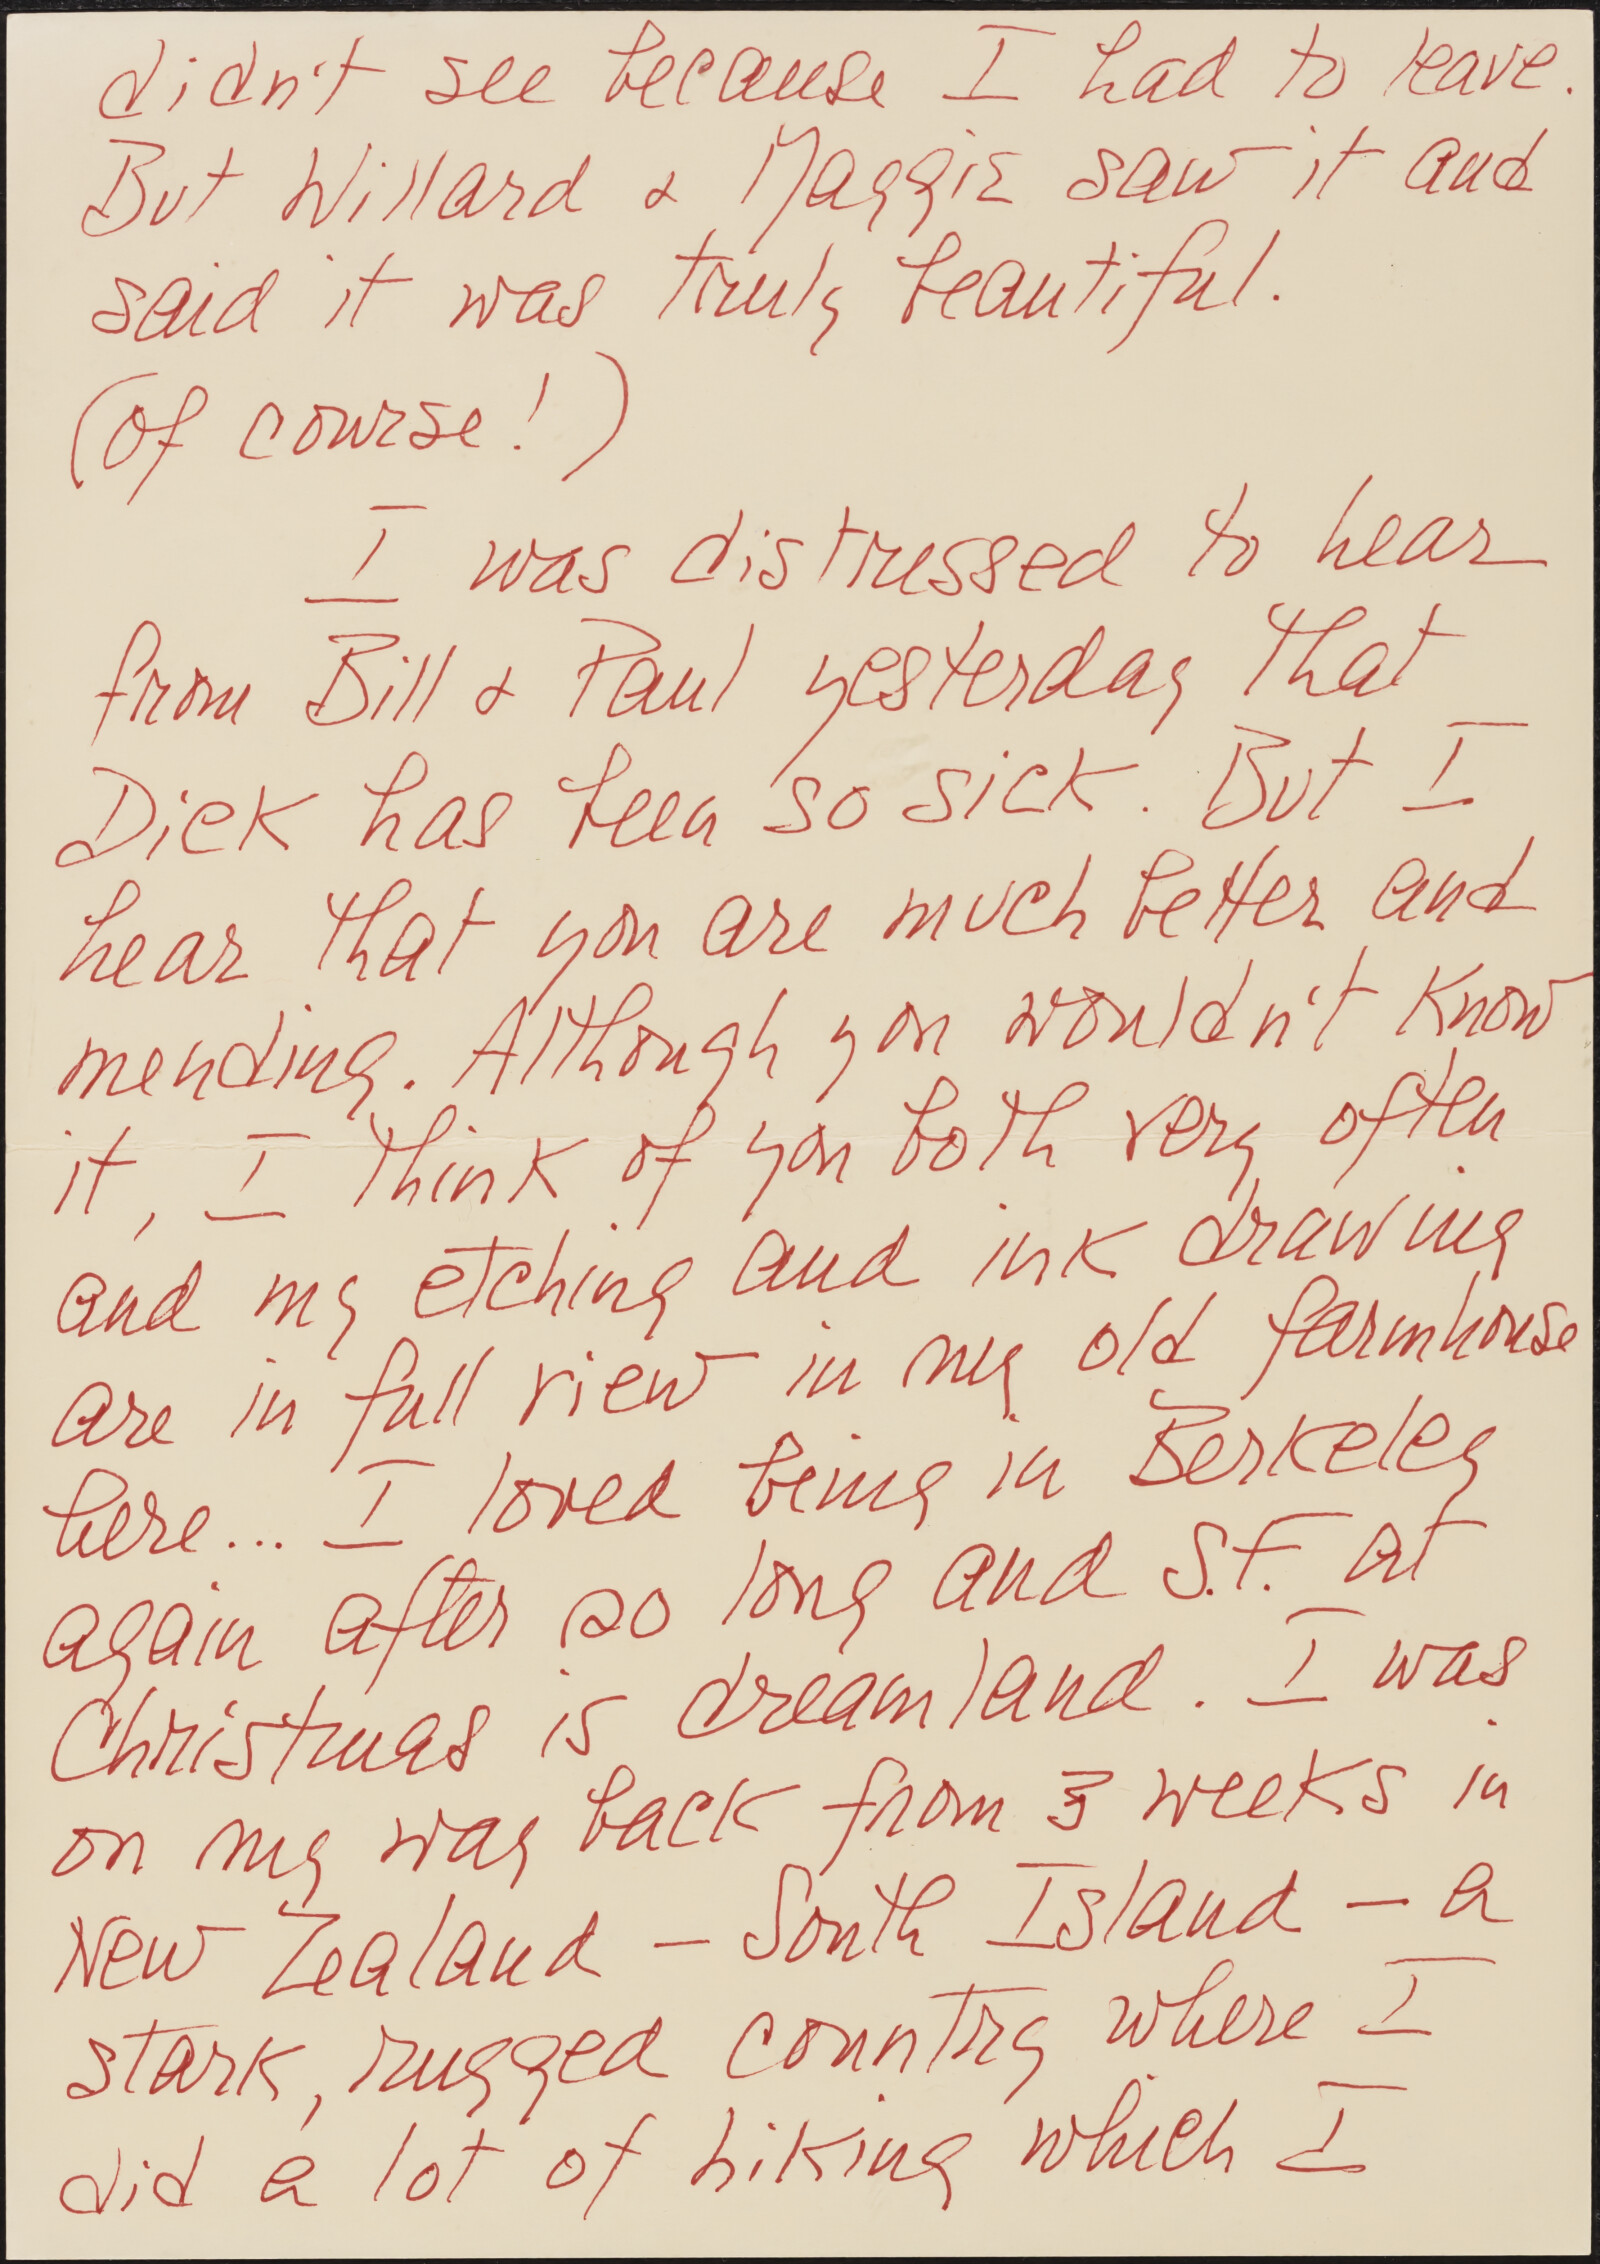 didn't see because I had to leave.
But Willard & Maggie saw it and
said it was truly beautiful.
(of course!)
I was distressed to hear
from Bill & Paul yesterday that
Dick has been so sick. But I
hear that you are much better and
mending. Although you wouldn't know
it, I think of you both very often
and my etching and ink drawing
are in full view in my old farmhouse
here... I loved being in Berkeley
again after so long and S.F. at
Christmas is dreamland. I was
on my way back from 3 weeks in
New Zealand – South Island – a
stark, rugged country where I
did a lot of hiking which I